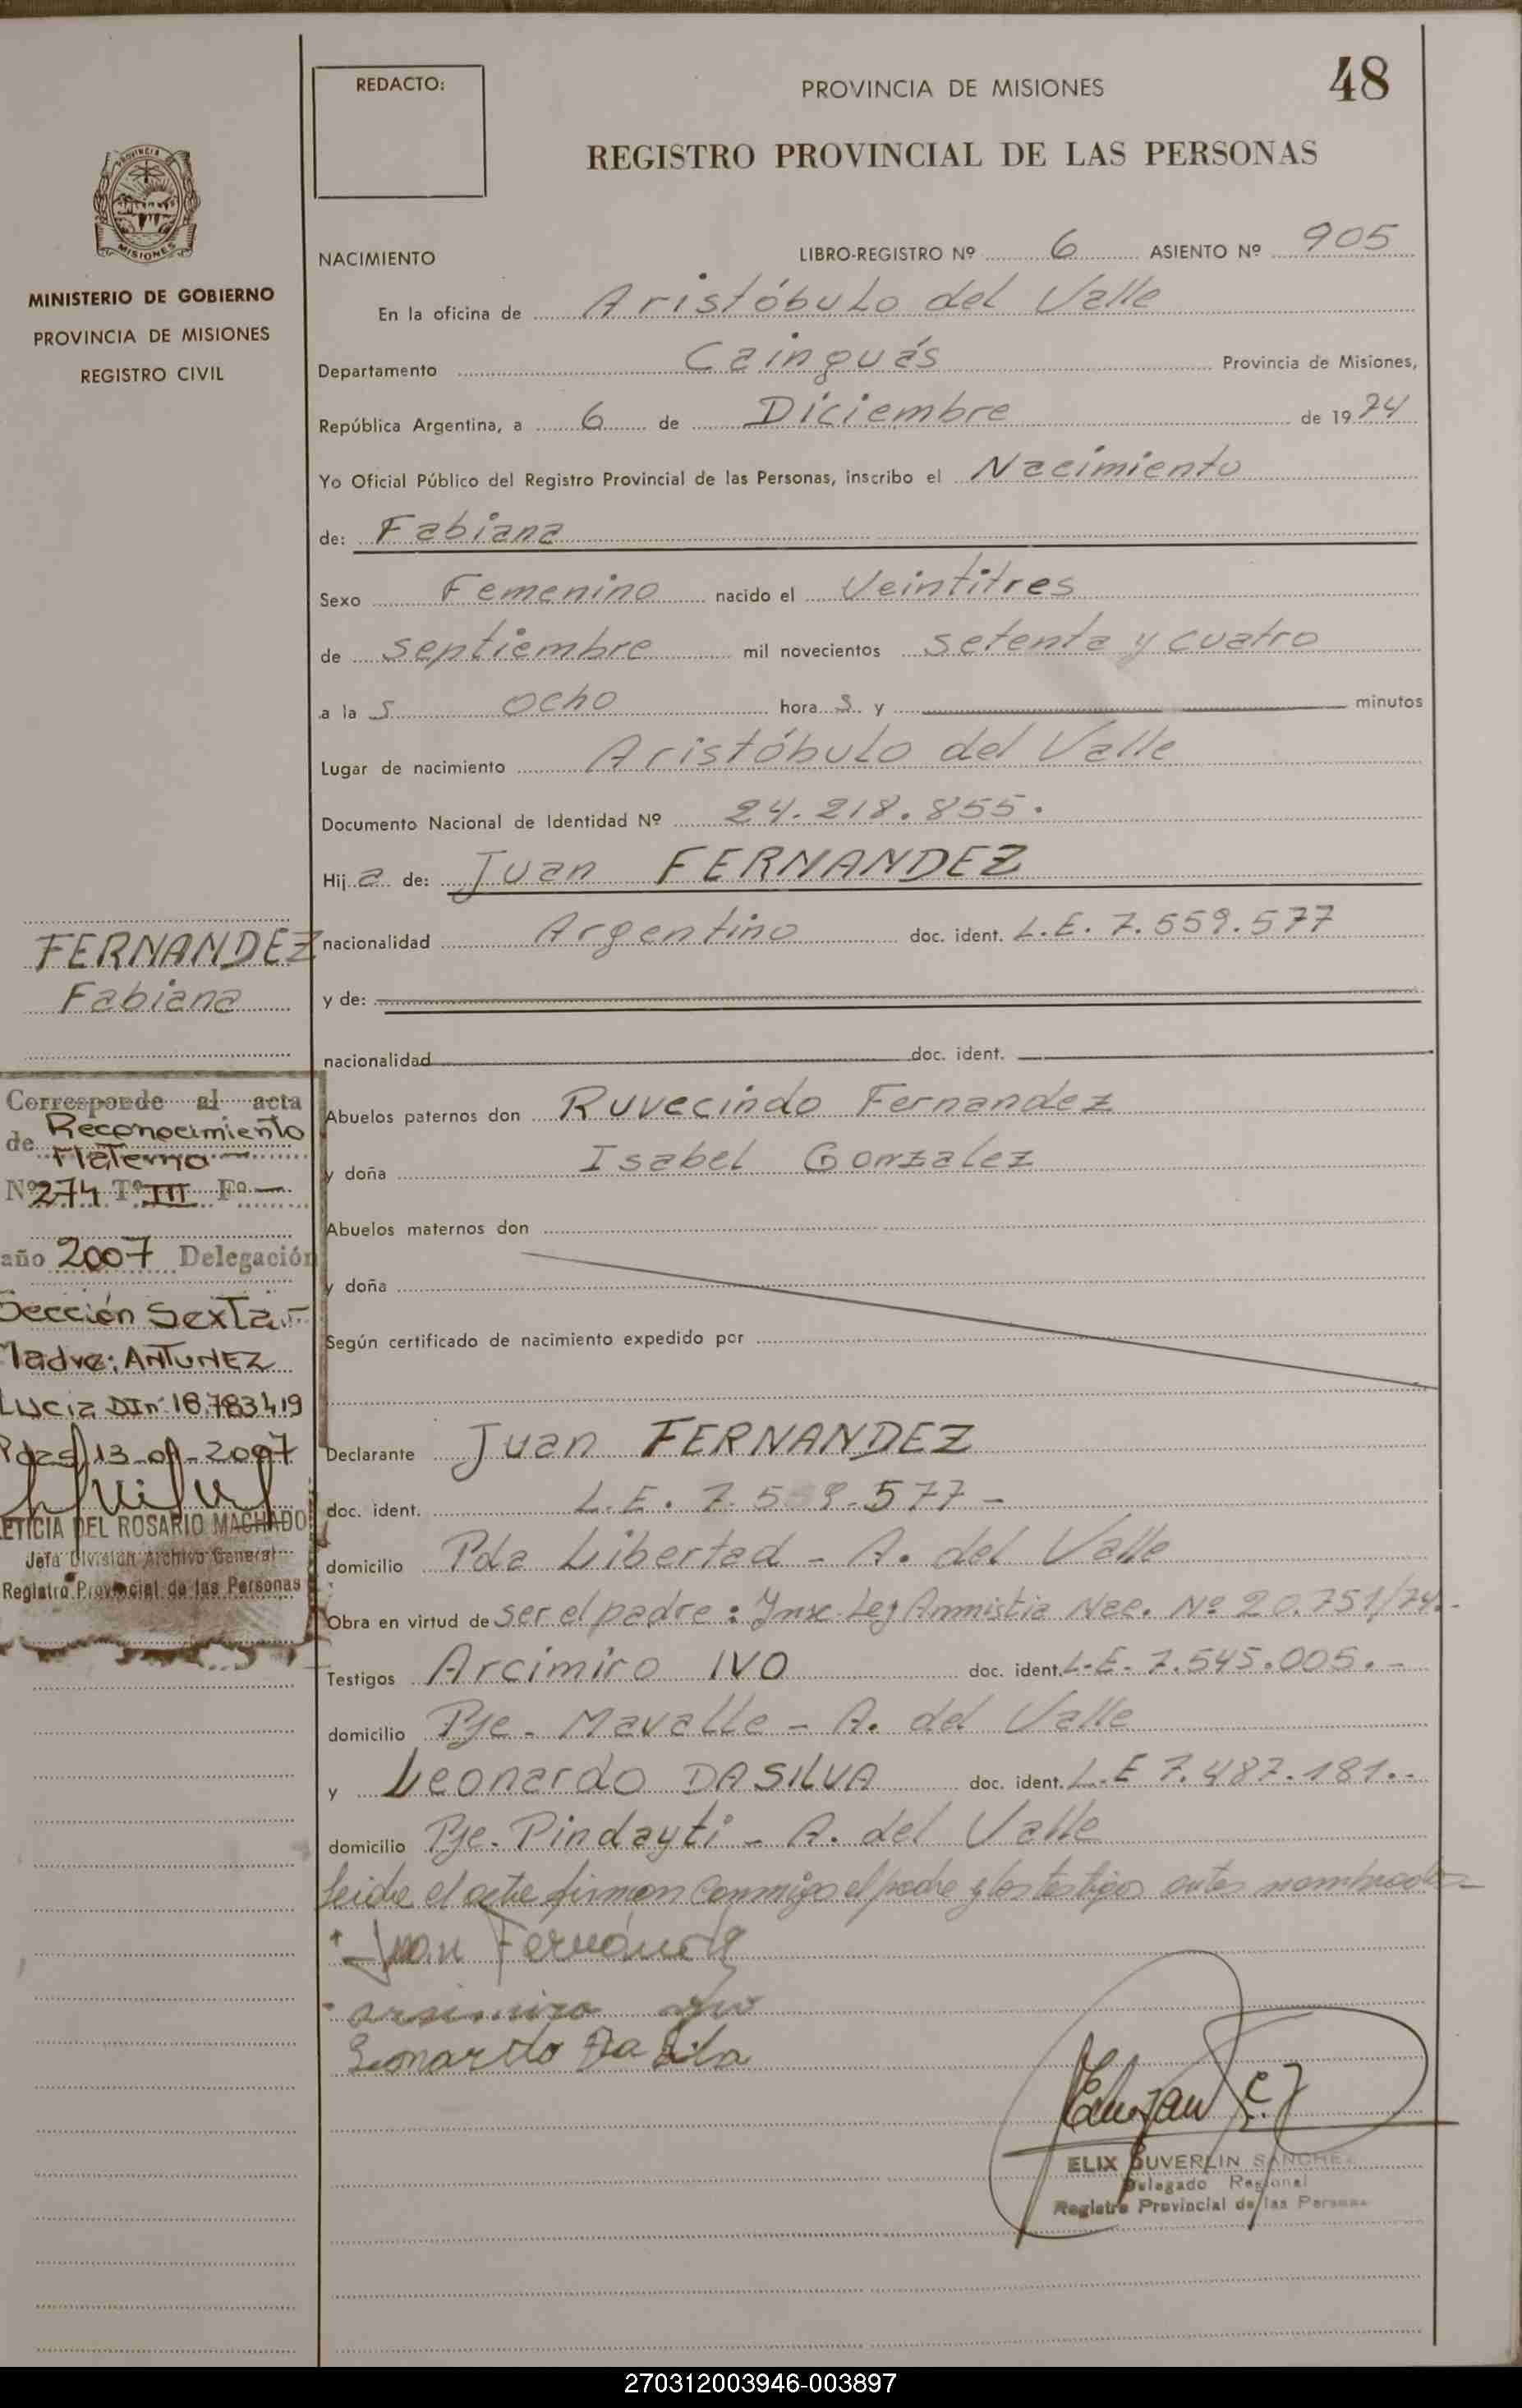 48
REDACTO:
PROVINCIA DE MISIONES
REGISTRO PROVINCIAL DE LAS PERSONAS
PROVINCIA
MISIONES
MINISTERIO DE GOBIERNO
PROVINCIA DE MISIONES
REGISTRO CIVIL
NACIMIENTO LIBRO-REGISTRO Nº 6 ASIENTO Nº 905
En la oficina de Aristóbulo del Valle
Departamento Cainguás Provincia de Misiones,
República Argentina, a 6 de Diciembre de 1974
Yo Oficial Público del Registro Provincial de las Personas, inscribo el Nacimiento
de: Fabiana
Sexo Femenino nacido el Veintitres
de septiembre mil novecientos setenta y cuatro
a la s ocho hora s y minutos
Lugar de nacimiento Aristóbulo del Valle
Documento Nacional de Identidad Nº 24.218.855.
Hij a de: Juan FERNANDEZ
nacionalidad Argentino doc. ident. L.E. 7.559.577
y de:
nacionalidad doc. ident.
Abuelos paternos don Ruvecindo Fernandez
y doña Isabel Gonzalez
Abuelos maternos don
y doña
Según certificado de nacimiento expedido por
Declarante Juan FERNANDEZ
doc. ident. L.E. 7.559.577 -
domicilio Pda Libertad - A. del Valle
Obra en virtud de ser el padre: Ley Amnistia Nac. Nº 20.751/74.-
Testigos Arcimiro IVO doc. ident. L.E. 7.545.005.-
domicilio Pje. Mavalle - A. del Valle
y Leonardo DA SILVA doc. ident. L.E 7.487.181.-
domicilio Pje. Pindayti - A. del Valle
Leida el acta firman conmigo el padre y los testigos antes nombrados-
Juan Fernández
Leonardo Da Silva
ELIX DUVERLIN SANCHEZ
Delegado Regional
Registro Provincial de las Personas
FERNANDEZ
Fabiana
Corresponde al acta
de Reconocimiento
Materno
Nº 274 Tº III Fº -
año 2007 Delegación
Sección Sexta.-
Madre: ANTUNEZ
Lucia DI nº 18.783.419
Pdas, 13-09-2007
LETICIA DEL ROSARIO MACHADO
Jefa División Archivo General
Registro Provincial de las Personas
270312003946-003897